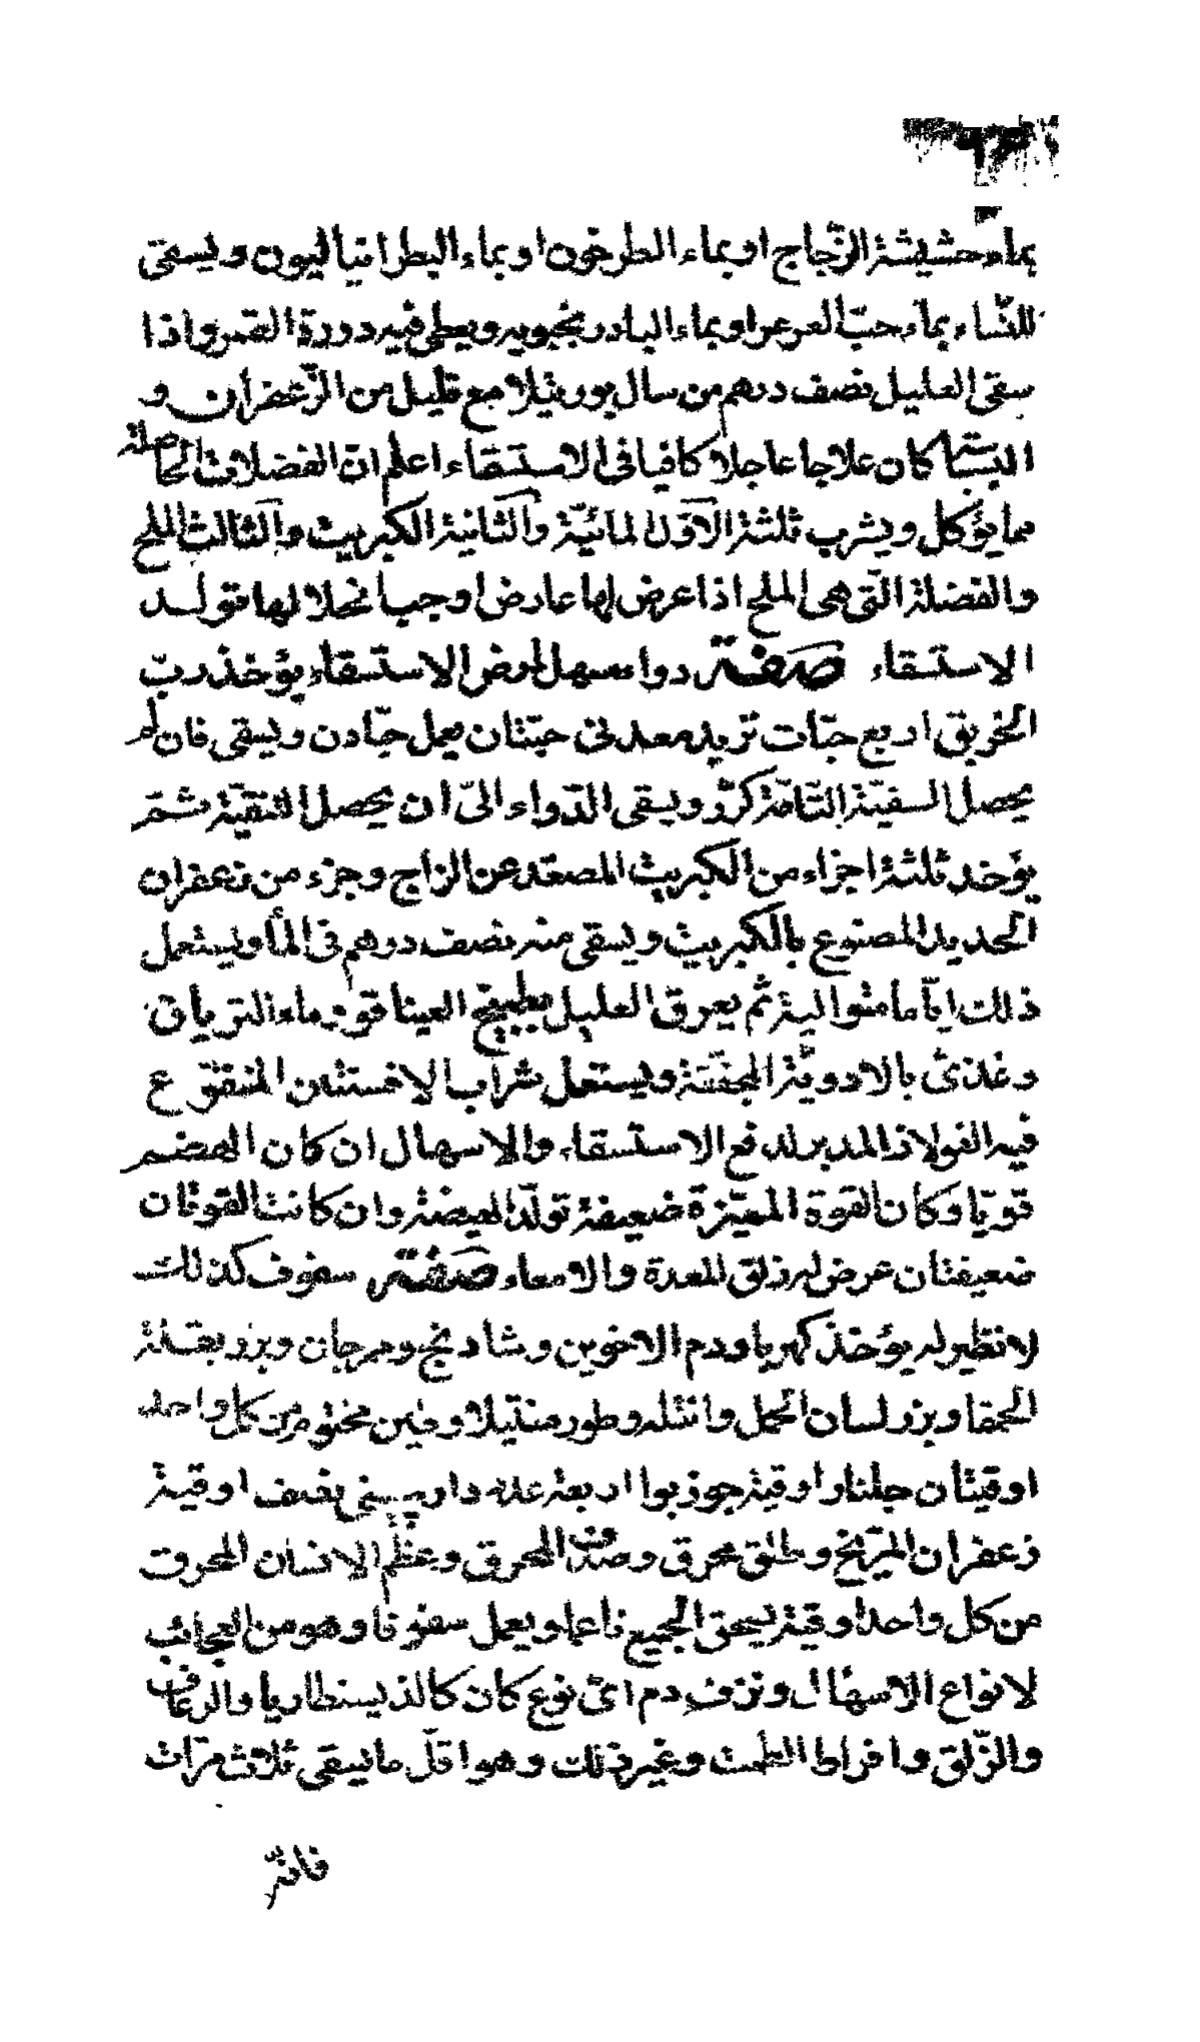 بماء حشيشة الزّجاج او بماء الطرخون او بماء البطرافيا ليون ويسقى
للنّساء بماء حبّ العرعر او بماء البادرنجبويه ويعطى فيه دورة القمر واذا
سقى العليل نصف درهم من سال بورثيلا مع قليل من الزّعفران و
البستبا كان علاجا عاجلا كافيا فى الاستسقاء اعلم ان الفضلات الحاصلة
مما يؤكل ويشرب ثلثة الاوّل المائيّة والثانية الكبريت والثالث الملح
والفضلة الّتى هى الملح اذا عرض لها عارض اوجب انحلالها فتولد
الاستسقاء صفة دواء مسهل لمرض الاستسقاء يؤخذ ربّ
الخربق اربع حبّات تربد معدنى حبّتان يعمل حبّا دن ويسقى فان لم
يحصل السفيّة التّامّة كرّر ويسقى الدّواء الىّ ان يحصل التنقيّة ثمّ
يؤخذ ثلثة اجزاء من الكبريت المصعّد عن الزاج وجزء من زعفران
الحديد المصنوع بالكبريت ويسقى منه نصف درهم فى المأ ويستعمل
ذلك ايّاما متوالية ثم يعرق العليل بطبيخ العينا قو وماء الترياق
وغذىّ بالادويّة المجفّفة ويستعمل شراب الافسنتين المنقّع
فيه الفولاذ المدبر لدفع الاستسقاء والاسهال ان كان الهضم
قويّا وكان القوة المميّزة ضعيفة تولّد الهيضة وان كانت القوتان
ضعيفتان عرض له زلق المعدة والامعاء صفة سفوف كذلك
لا نظير له يؤخذ كهربا ودم الاخوين وشادنج ومرجان وبزر بقلة
الحمقا وبزر لسان الحمل وانثله وطور منتيلا وطين مختوم من كل واحد
اوقيتان جلنار اوقية جوز بوا اربعة عدد دارچينى نصف اوقية
زعفران المرّيخ وطلق محرق وصدف المحرق وعظم الانسان المحروق
من كل واحد اوقية يسحق الجميع ناعما ويعمل سفوفا وهو من العجائب
لانواع الاسهال ونزف دم اىّ نوع كان كالذيسنطاريا والرعاف
والزّلق وافراط الطمث وغير ذلك وهو اقلّ ما يسقى ثلاث مرّات
فانّه